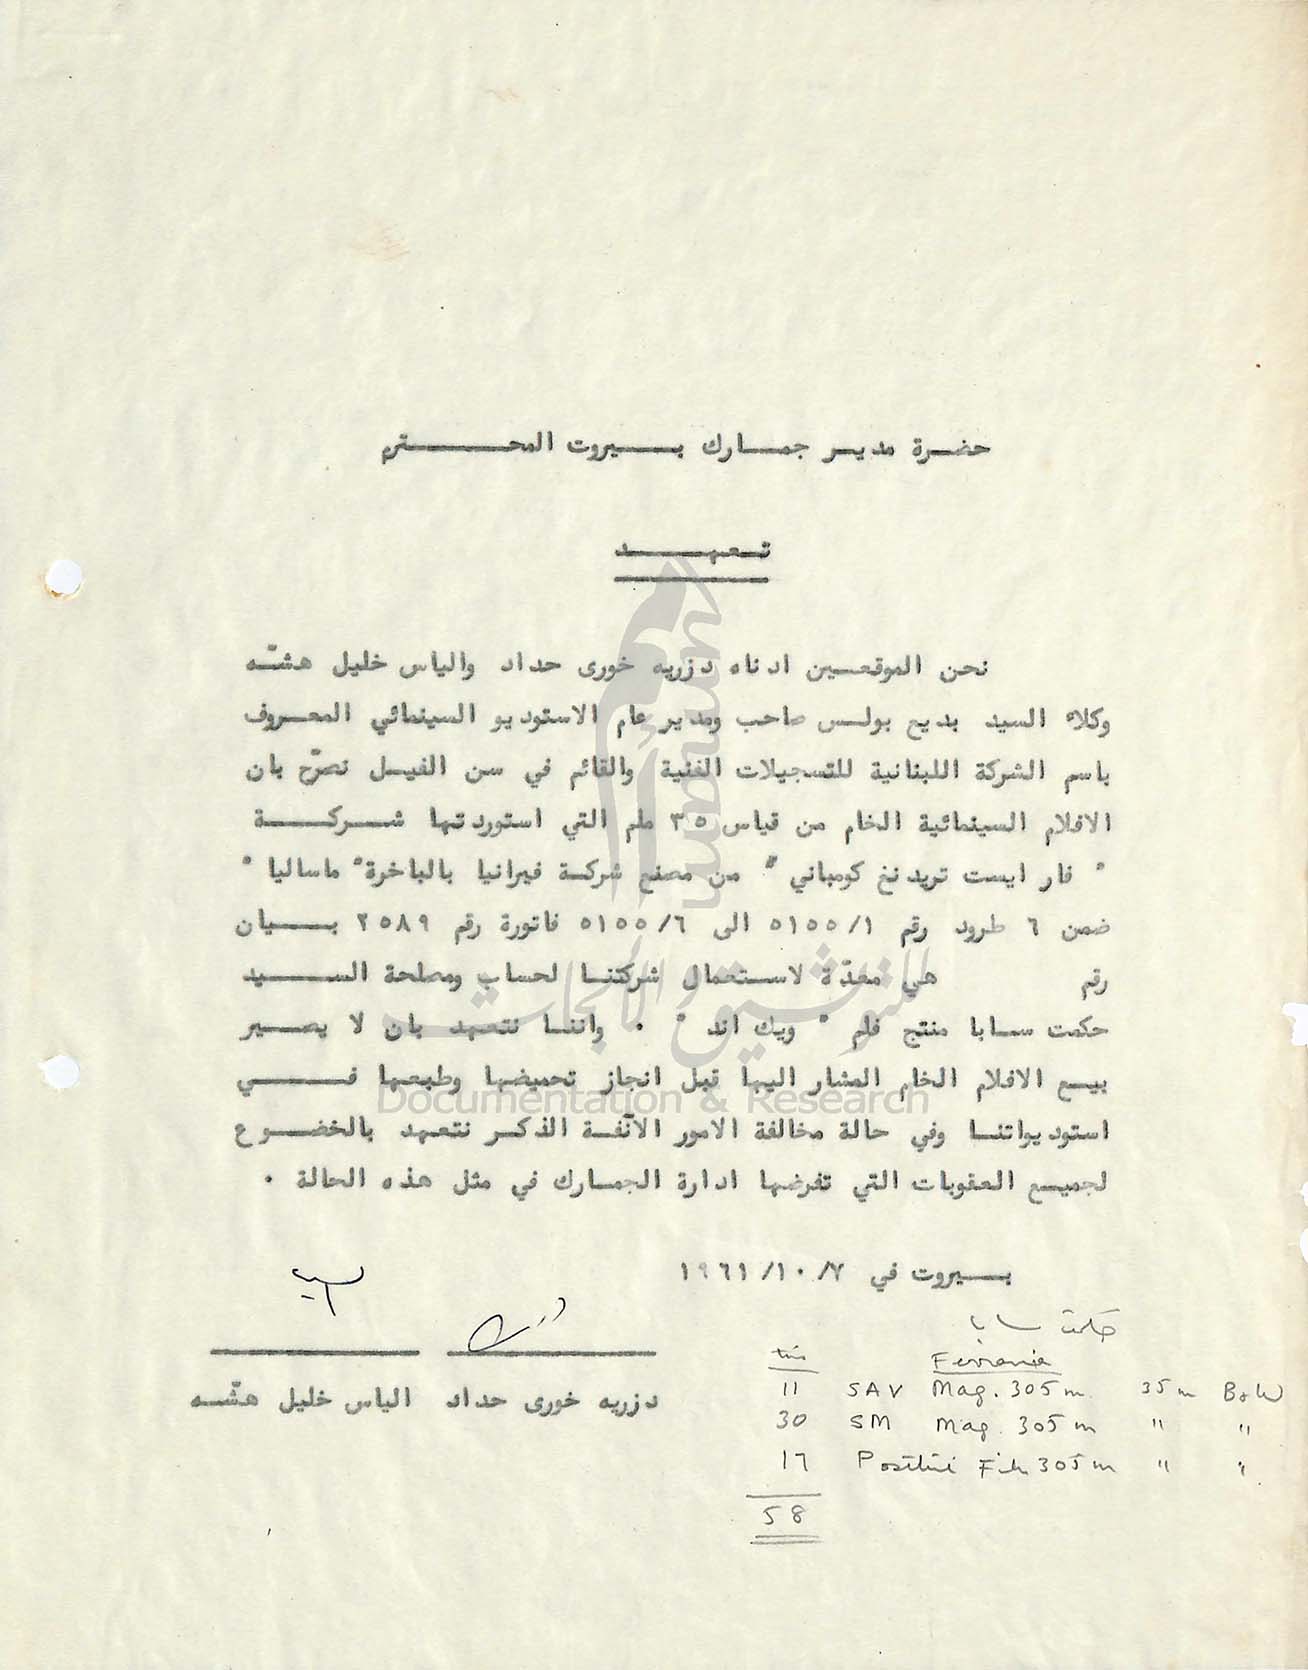 حضرة مدير جمارك بيروت المحترم
تعهد
نحن الموقعين ادناه دزريه خورى حداد والياس خليل هشّه
وكلاء السيد بديع بولس صاحب ومدير عام الاستوديو السينمائي المعروف
باسم الشركة اللبنانية للتسجيلات الفنية والقائم في سن الفيل نصرّح بان
الافلام السينمائية الخام من قياس ٣٥ ملم التي استوردتها شركة
" فار ايست تريدنغ كومباني " من مصنع شركة فيرانيا بالباخرة " ماساليا "
ضمن ٦ طرود رقم ٥١٥٥/١ الى ٥١٥٥/٦ فاتورة رقم ٢٥٨٩ بيان
رقم هي معدّة لاستعمال شركتنا لحساب ومصلحة السيد
حكمت سابا منتج فلم " ويك اند " . واننا نتعهد بان لا يصير
بيع الافلام الخام المشار اليها قبل انجاز تحميضها وطبعها في
استوديواتنا وفي حالة مخالفة الامور الآنفة الذكر نتعهد بالخضوع
لجميع العقوبات التي تفرضها ادارة الجمارك في مثل هذه الحالة .
بيروت في ١٩٦١/١٠/٧
دزريه خورى حداد الياس خليل هشّه
حكمت سابا
tins Ferrania
11 SAV Mag. 305 m 35 m B&W
30 SM Mag. 305 m " "
17 Positive Film 305 m " "
58
أمم
umam
للتوثيق والأبحاث
Documentation & Research